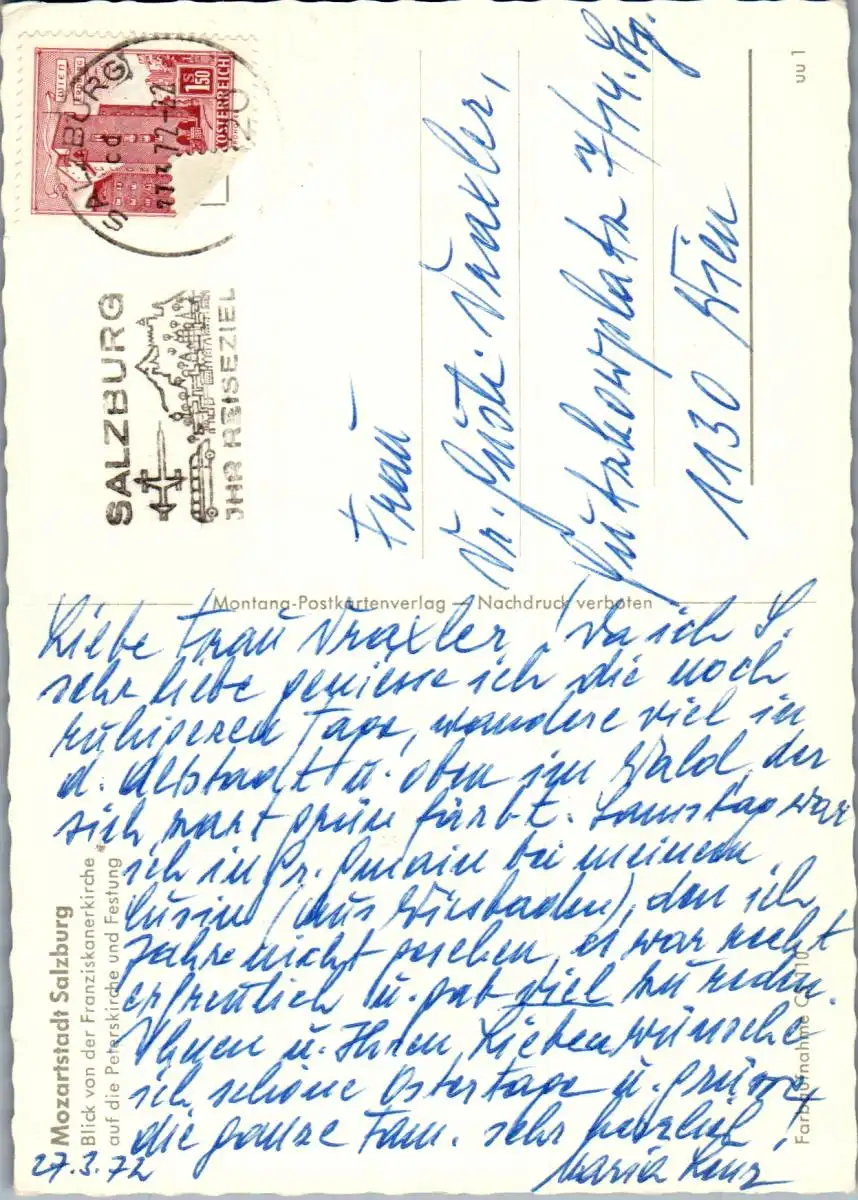 WIEN
ERDBERG
S 1.50
ÖSTERREICH
SALZBURG
cd
27.3.72
SALZBURG
JHR REISEZIEL
uu 1
Frau
Dr. Gusti Draxler,
Gutzkowplatz 7/14. Stg.
1130 Wien
Montana-Postkartenverlag — Nachdruck verboten
Liebe Frau Draxler! Da ich S.
sehr liebe geniesse ich die noch
ruhigeren Tage, wandere viel in
d. Altstadt u. oben im Wald, der
sich zart grün färbt. Samstag war
ich in Gr. Gmain bei meinem
Cusin (aus Wiesbaden), den ich
Jahre nicht gesehen, es war recht
erfreulich u. gab viel zu reden.
Ihnen u. Ihren Lieben wünsche
ich schöne Ostertage u. grüsse
die ganze Fam. sehr herzlich!
Maria Lenz
27.3.72
Mozartstadt Salzburg
Blick von der Franziskanerkirche
auf die Peterskirche und Festung
Farbaufnahme